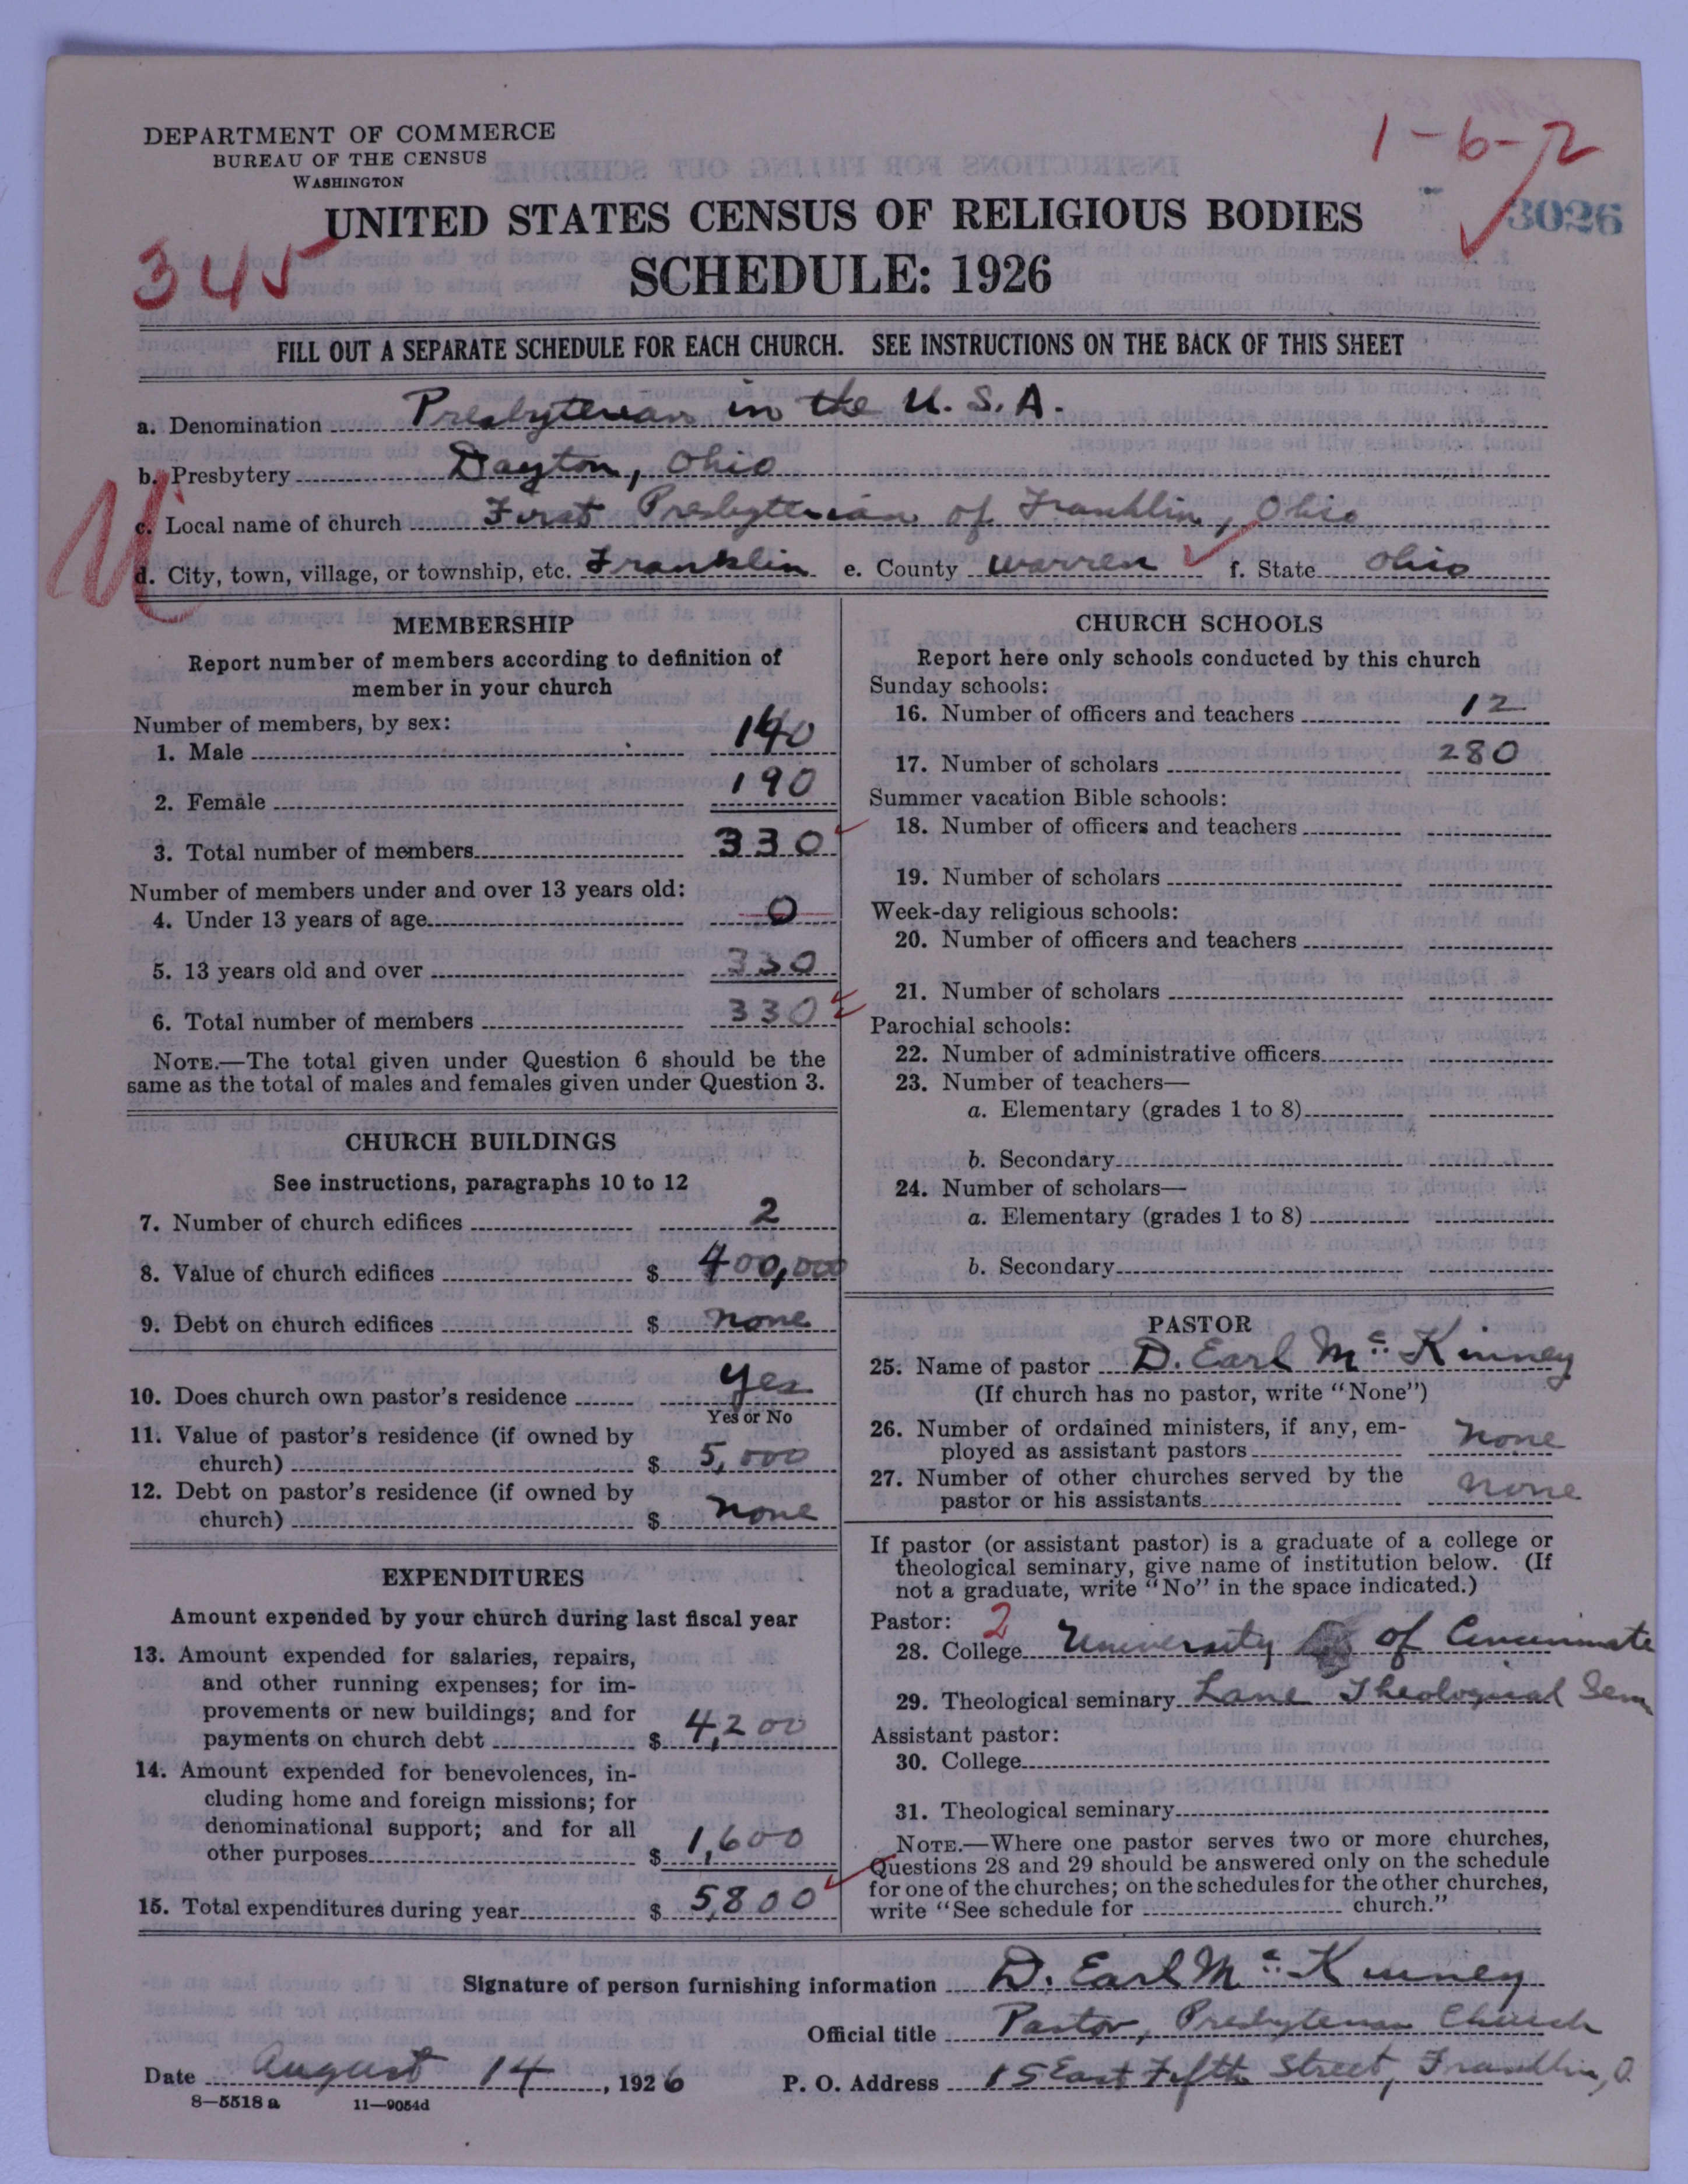 1-6-2
DEPARTMENT OF COMMERCE
BUREAU OF THE CENSUS
WASHINGTON
3026
UNITED STATES CENSUS OF RELIGIOUS BODIES
345
SCHEDULE: 1926
FILL OUT A SEPARATE SCHEDULE FOR EACH CHURCH. SEE INSTRUCTIONS ON THE BACK OF THIS SHEET
a. Denomination Presbyterian in the U. S. A.
b. Presbytery Dayton, Ohio
c. Local name of church First Presbyterian of Franklin, Ohio
d. City, town, village, or township, etc. Franklin e. County Warren f. State Ohio
MEMBERSHIP
Report number of members according to definition of
member in your church
Number of members, by sex:
1. Male 140
2. Female 190
3. Total number of members 330
Number of members under and over 13 years old:
4. Under 13 years of age 0
5. 13 years old and over 330
6. Total number of members 330
NOTE.—The total given under Question 6 should be the
same as the total of males and females given under Question 3.
CHURCH BUILDINGS
See instructions, paragraphs 10 to 12
7. Number of church edifices 2
8. Value of church edifices $ 400,000
9. Debt on church edifices $ none
10. Does church own pastor's residence yes
Yes or No
11. Value of pastor's residence (if owned by
church) $ 5,000
12. Debt on pastor's residence (if owned by
church) $ none
EXPENDITURES
Amount expended by your church during last fiscal year
13. Amount expended for salaries, repairs,
and other running expenses; for im-
provements or new buildings; and for
payments on church debt $ 4,200
14. Amount expended for benevolences, in-
cluding home and foreign missions; for
denominational support; and for all
other purposes $ 1,600
15. Total expenditures during year $ 5,800
CHURCH SCHOOLS
Report here only schools conducted by this church
Sunday schools:
16. Number of officers and teachers 12
17. Number of scholars 280
Summer vacation Bible schools:
18. Number of officers and teachers
19. Number of scholars
Week-day religious schools:
20. Number of officers and teachers
21. Number of scholars
Parochial schools:
22. Number of administrative officers
23. Number of teachers—
a. Elementary (grades 1 to 8)
b. Secondary
24. Number of scholars—
a. Elementary (grades 1 to 8)
b. Secondary
PASTOR
25. Name of pastor D. Earl McKinney
(If church has no pastor, write "None")
26. Number of ordained ministers, if any, em-
ployed as assistant pastors none
27. Number of other churches served by the
pastor or his assistants none
If pastor (or assistant pastor) is a graduate of a college or
theological seminary, give name of institution below. (If
not a graduate, write "No" in the space indicated.)
Pastor: 2
28. College University of Cincinnati
29. Theological seminary Lane Theological Sem
Assistant pastor:
30. College
31. Theological seminary
NOTE.—Where one pastor serves two or more churches,
Questions 28 and 29 should be answered only on the schedule
for one of the churches; on the schedules for the other churches,
write "See schedule for church."
Signature of person furnishing information D. Earl McKinney
Official title Pastor, Presbyterian Church
Date August 14, 1926 P. O. Address 15 East Fifth Street, Franklin, O.
8—5518a 11—9054d